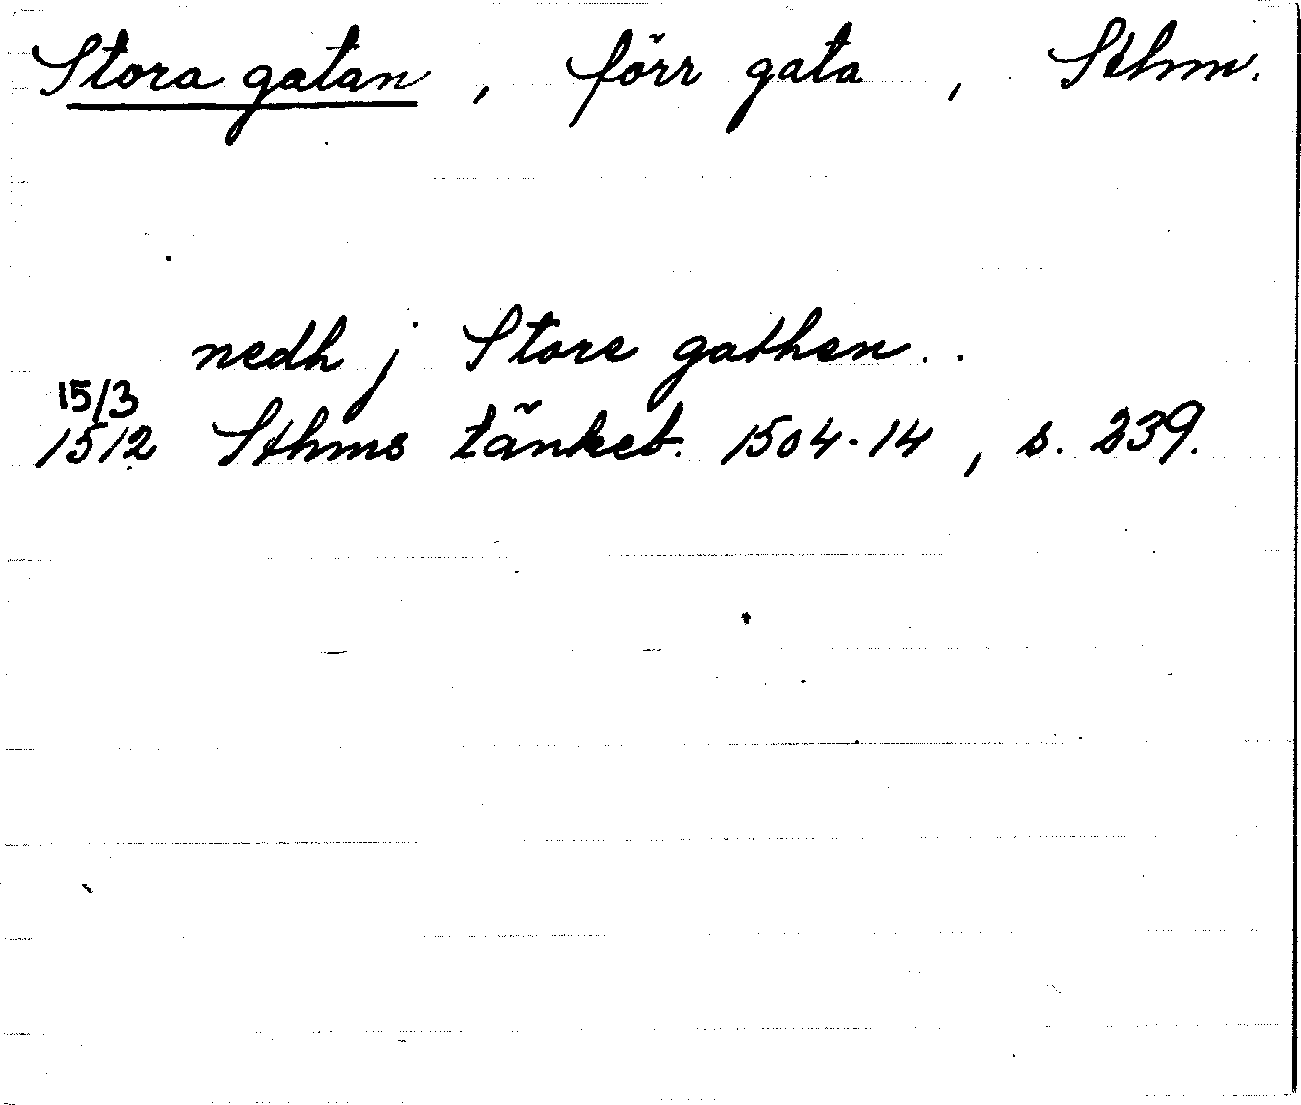 Stora gatan, förr gata, Sthm.
nedh j Store gathen..
15/3
1512 Sthms tänkeb. 1504-14, s. 239.